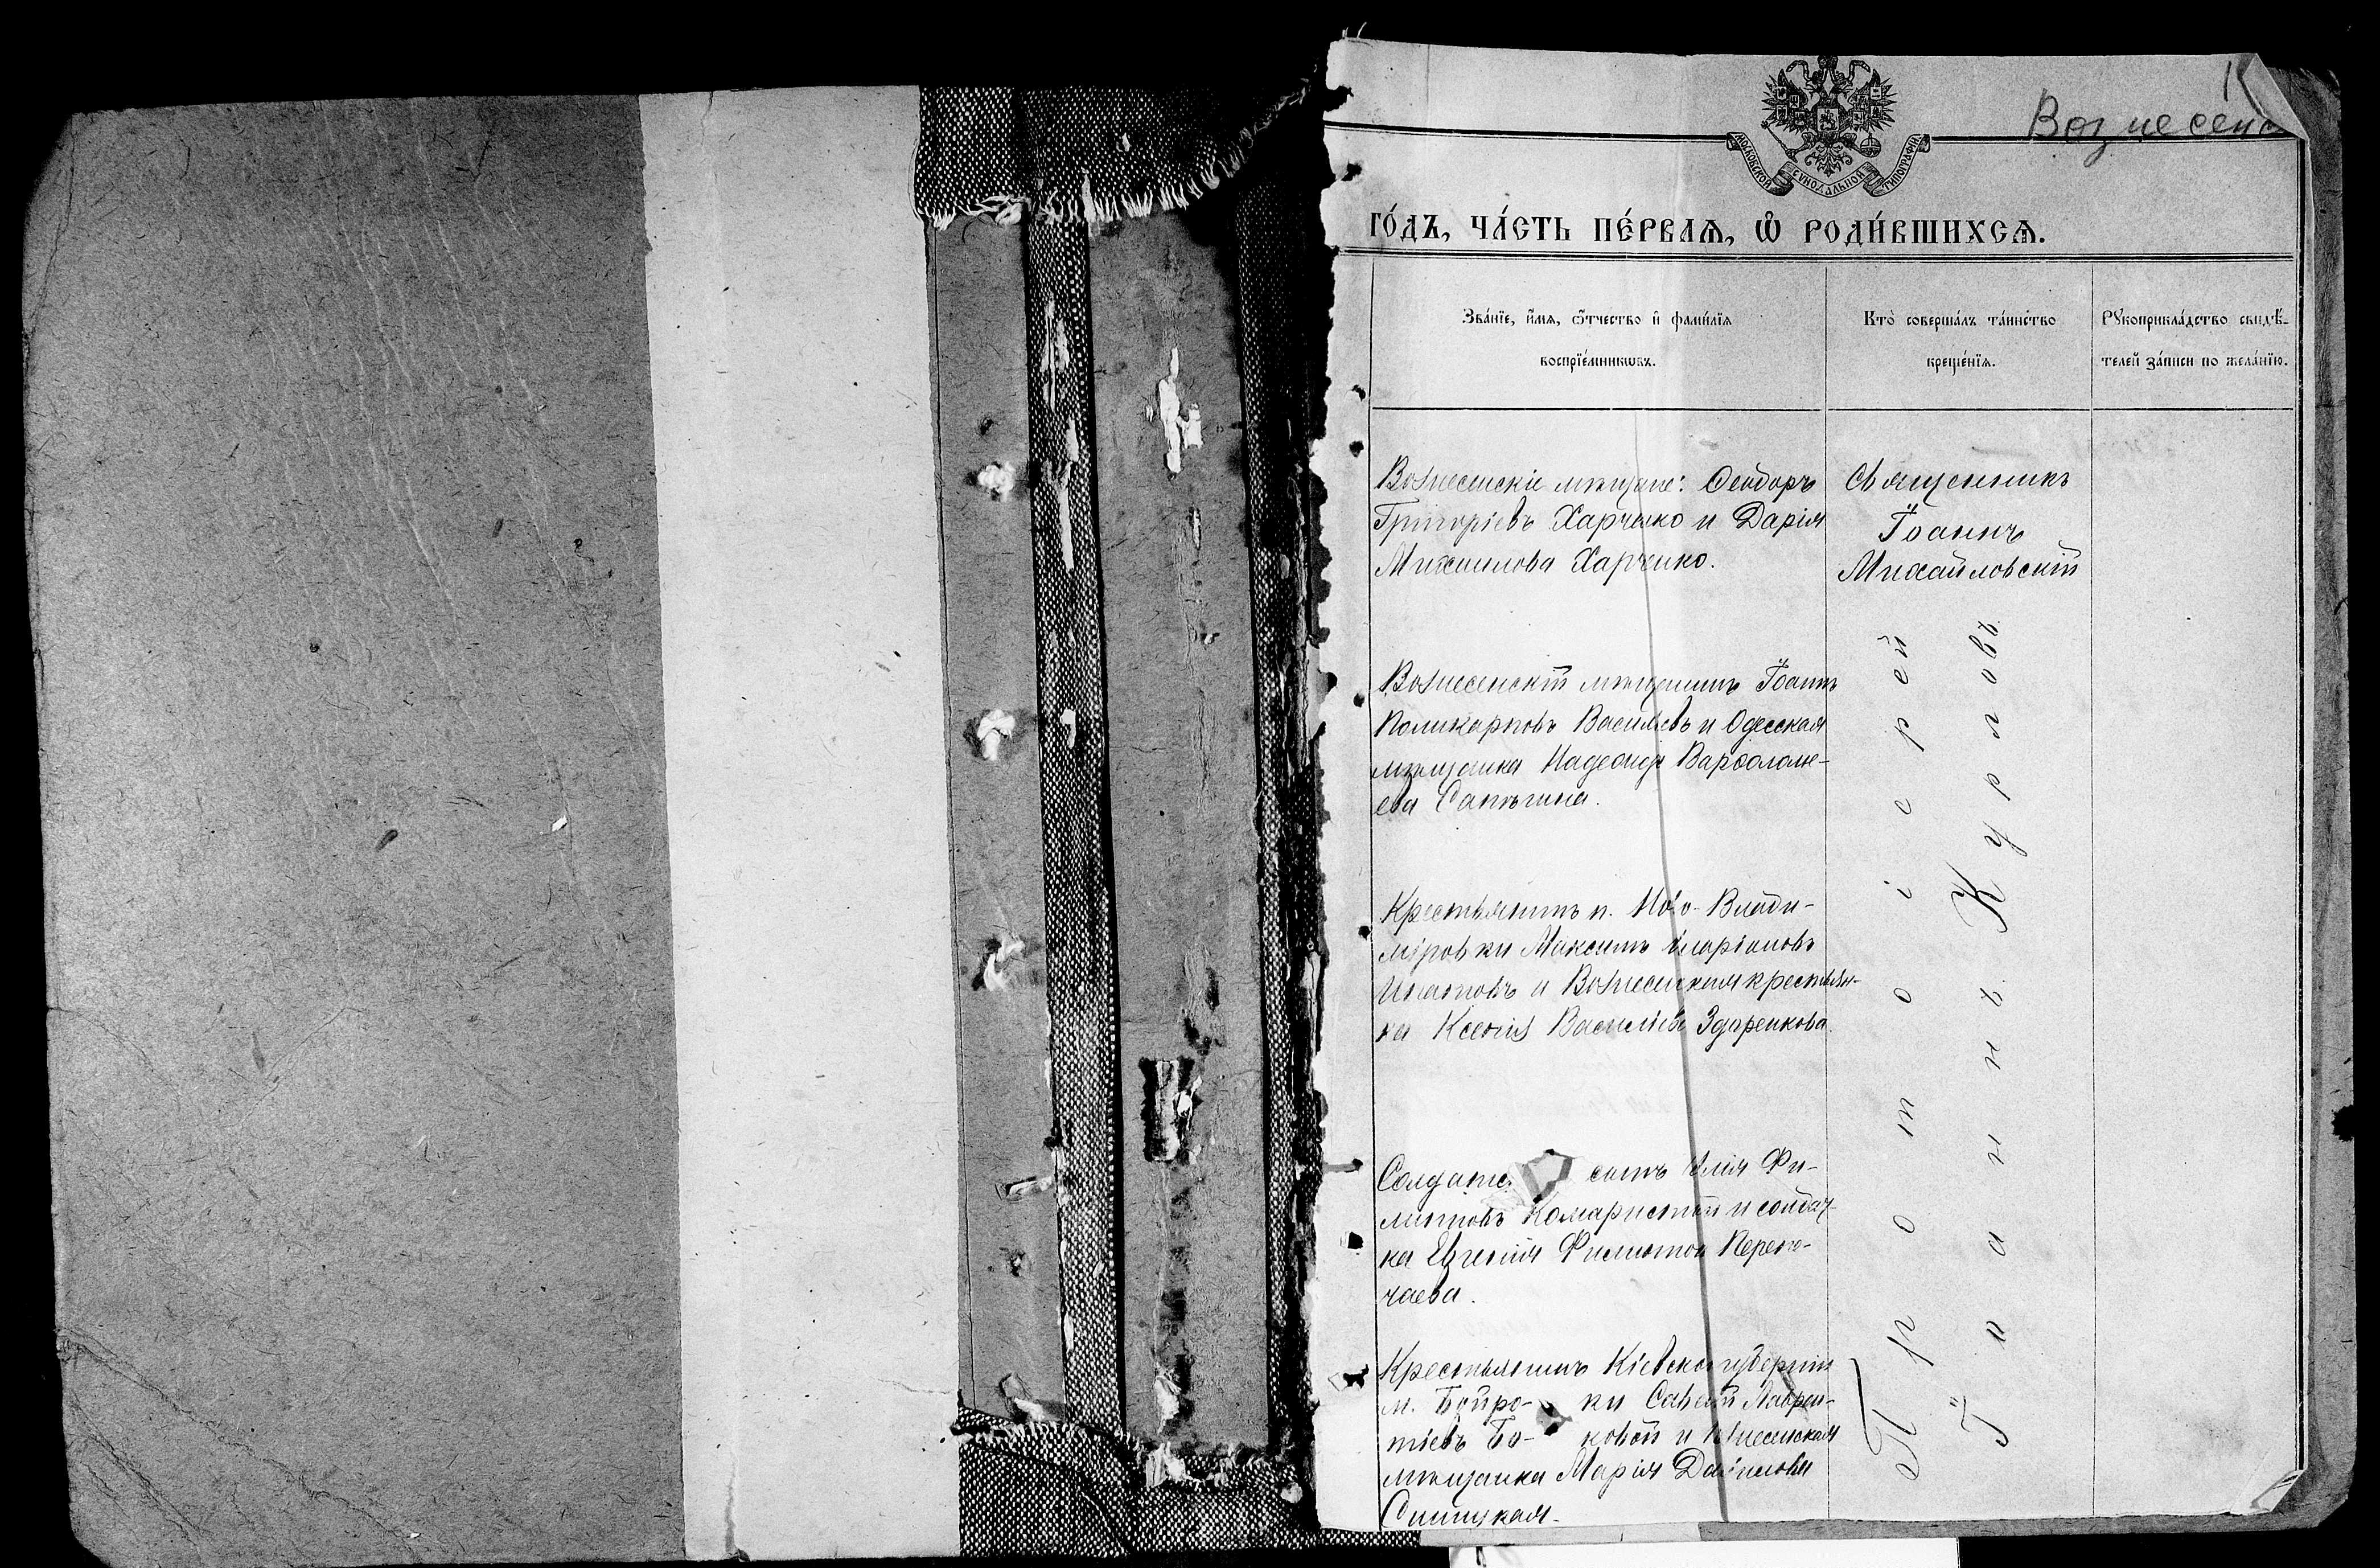 Вознесенс
МОСКОВСКОЙ СѴНОДАЛЬНОЙ ТИПОГРАФІИ
ГО́ДЪ, ЧА́СТЬ ПЕ́РВАѦ, Ѽ РОДИ́ВШИХСѦ.
Зва́нїе, и҆́мѧ, ѻ҆́тчество и҆ фами́лїѧ
воспрїе́мникѡвъ.
Кто̀ соверша́лъ та́инство
креще́нїѧ.
Рꙋкоприкла́дство свидѣ́-
телей за́писи по жела́нїю.
Вознесенскіе мѣщане: Ѳеодоръ
Григоріевъ Харченко и Дарія
Михаилова Харченко.
Священникъ
Іоаннъ
Михайловскій
Вознесенскій мѣщанинъ Іоаннъ
Поликарповъ Васильевъ и Одесская
мѣщанка Надежда Варѳоломе-
ева Сапѣгина.
Крестьянинъ п. Ново-Влади-
міровки Максимъ Иларіоновъ
Игнатовъ и Вознесенская крестьян-
ка Ксенія Василіева Здаренкова.
Солдатс. сынъ Илія Фи-
липповъ Комаристый и солдат-
ка Евгенія Филиппова Перепе-
чаева.
Крестьянинъ Кіевской губерніи
м. ки Савватій Лаврен-
тіевъ и Вознесенская
мѣщанка Марія Даніилова
Синицкая.
Протоіерей
Іоаннъ Курловъ